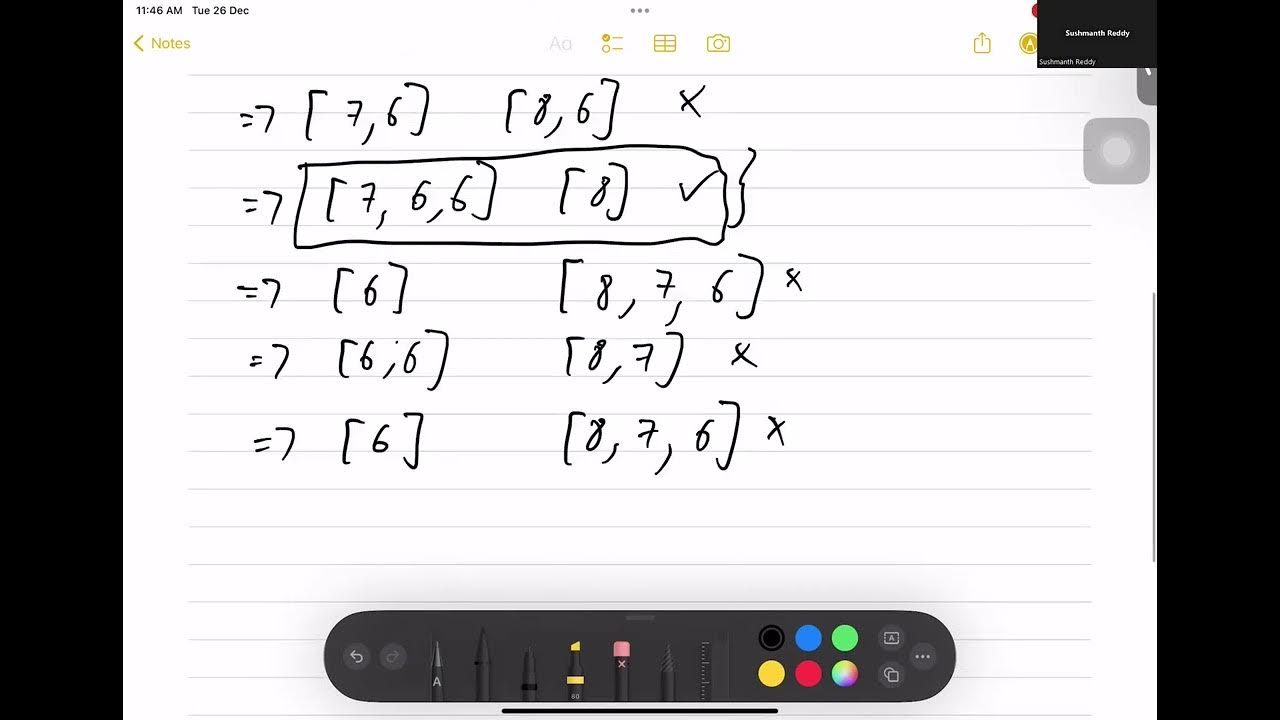 11:46 AM Tue 26 Dec
Sushmanth Reddy
Sushmanth Reddy
Notes
Aa
=> [7,6] [8,6] x
=> [7, 6,6] [8] ✓ }
=> [6] [8, 7, 6] x
=> [6,6] [8,7] x
=> [6] [8, 7, 6] x
A
80
A